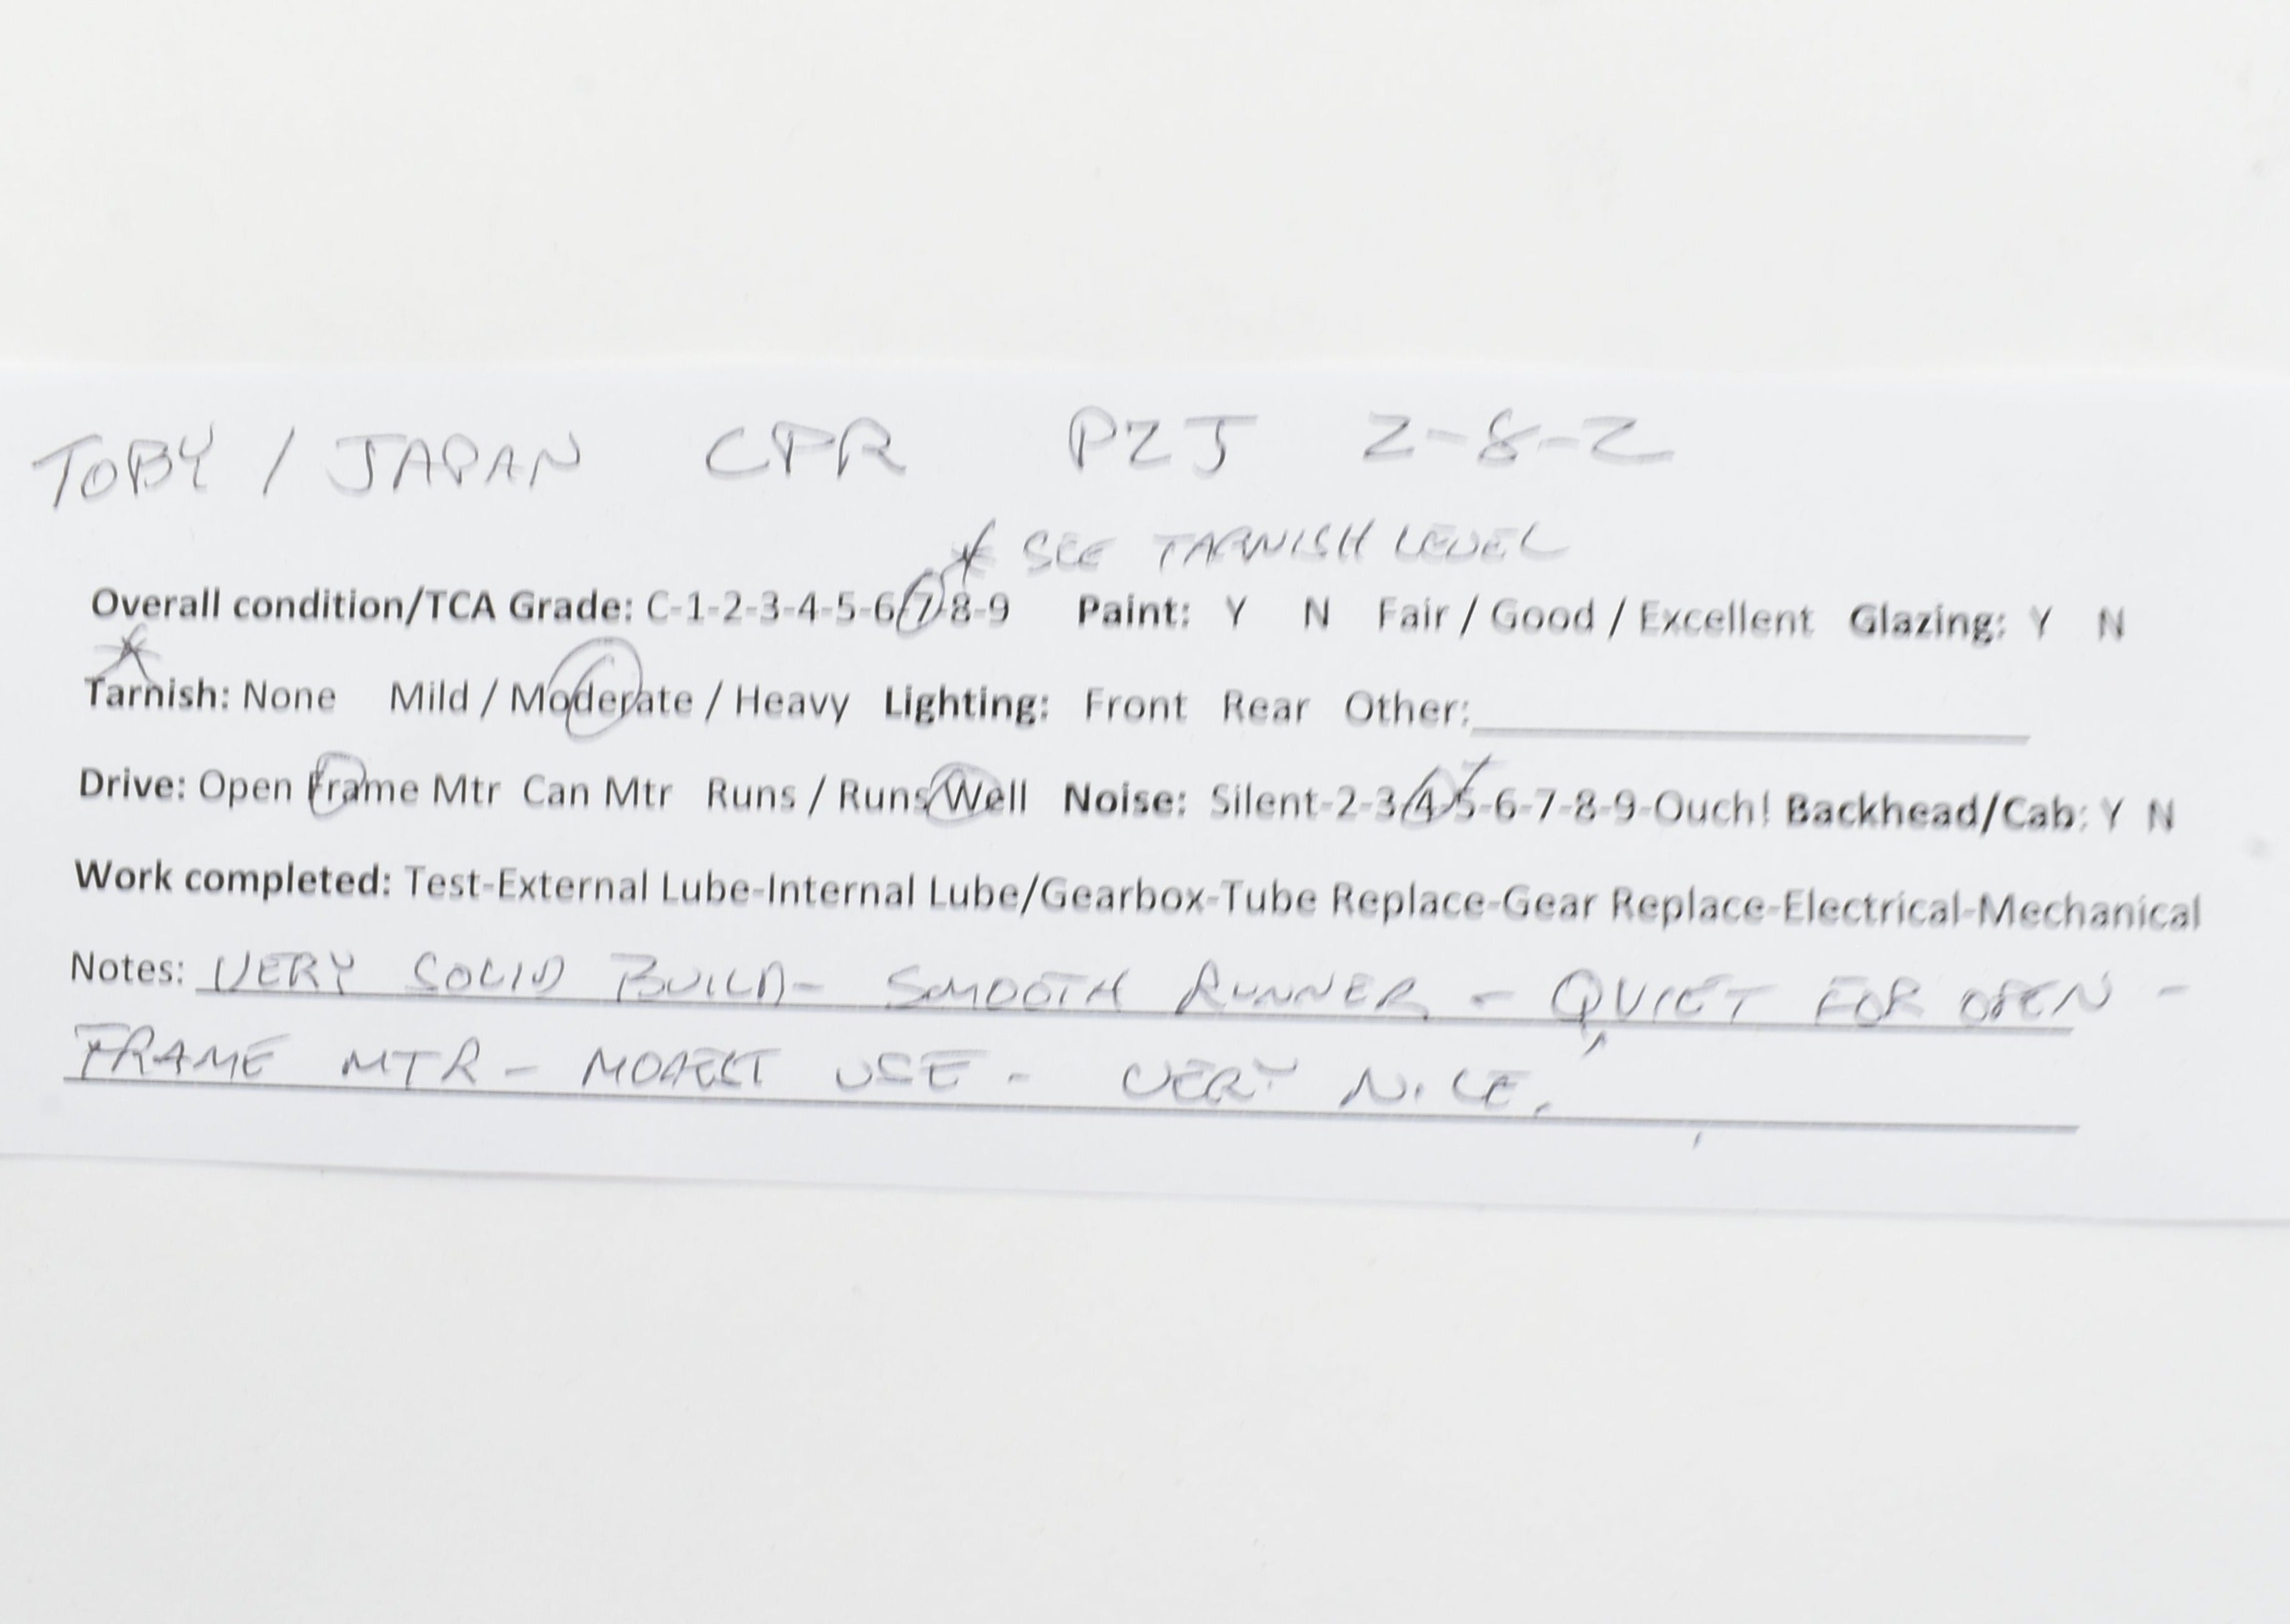 TOBY / JAPAN CPR P2J 2-8-2
* SEE TARNISH LEVEL
Overall condition/TCA Grade: C-1-2-3-4-5-6-7-8-9 Paint: Y N Fair / Good / Excellent Glazing: Y N
* Tarnish: None Mild / Moderate / Heavy Lighting: Front Rear Other:
Drive: Open Frame Mtr Can Mtr Runs / Runs Well Noise: Silent-2-3-4-5-6-7-8-9-Ouch! Backhead/Cab: Y N
Work completed: Test-External Lube-Internal Lube/Gearbox-Tube Replace-Gear Replace-Electrical-Mechanical
Notes: VERY SOLID BUILD - SMOOTH RUNNER - QUIET FOR OPEN -
FRAME MTR - MODEST USE - VERY NICE.